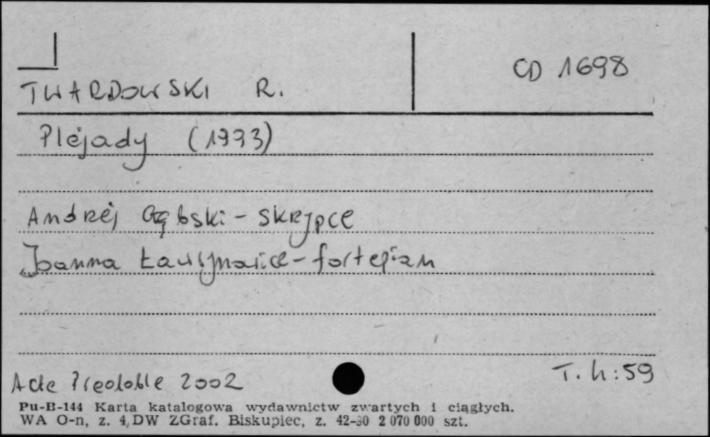 CD 1698
TWARDOWSKI R.
Plejady (1993)
Andrzej Gębski - skrzypce
Joanna Ławrynowicz - fortepian
T. 4:59
Acte Préalable 2002
Pu-B-144 Karta katalogowa wydawnictw zwartych i ciągłych.
WA O-n, z. 4, DW ZGraf. Biskupiec, z. 42-90 2 070 000 szt.